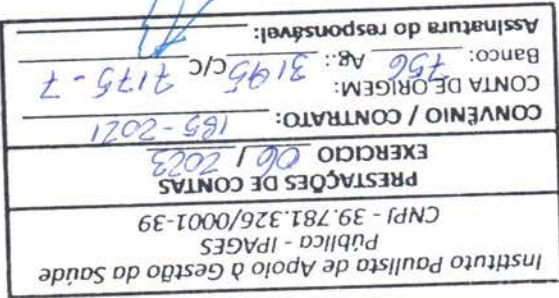 Instituto Paulista de Apoio à Gestão da Saúde
Pública - IPAGES
CNPJ - 39.781.326/0001-39
PRESTAÇÕES DE CONTAS
EXERCICIO 06 / 2023
CONVÊNIO / CONTRATO: 185-2021
CONTA DE ORIGEM:
Banco: 756 Ag.: 3195 C/C 7175-7
Assinatura do responsável: